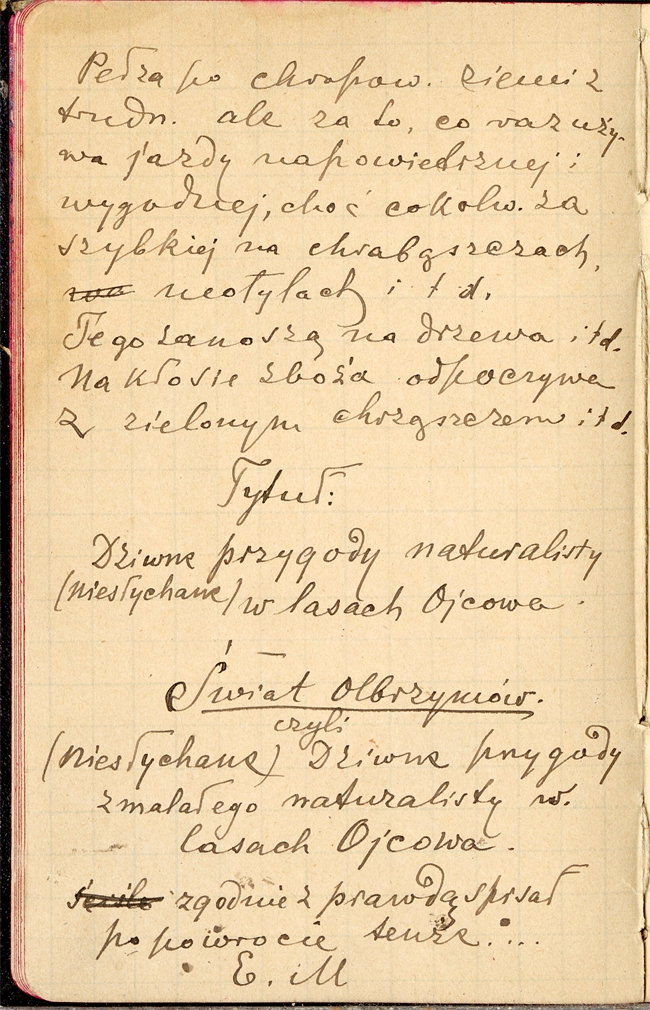 Pędzą po chropow. ziemi z
trudn. ale za to, co raz uży-
wa jazdy napowietrznej i
wygodnej, choć cokolw. za
szybkiej na chrabąszczach,
motylach i t d.
Tego zanoszą na drzewa i td.
Na kłosie zboża odpoczywa
z zielonym chrząszczem i td.
Tytuł:
Dziwne przygody naturalisty
(niesłychane) w lasach Ojcowa.
Świat Olbrzymów.
czyli
(niesłychane) Dziwne przygody
zmalałego naturalisty w.
lasach Ojcowa.
ściśle zgodnie z prawdą spisał
po powrocie tenże....
E. M